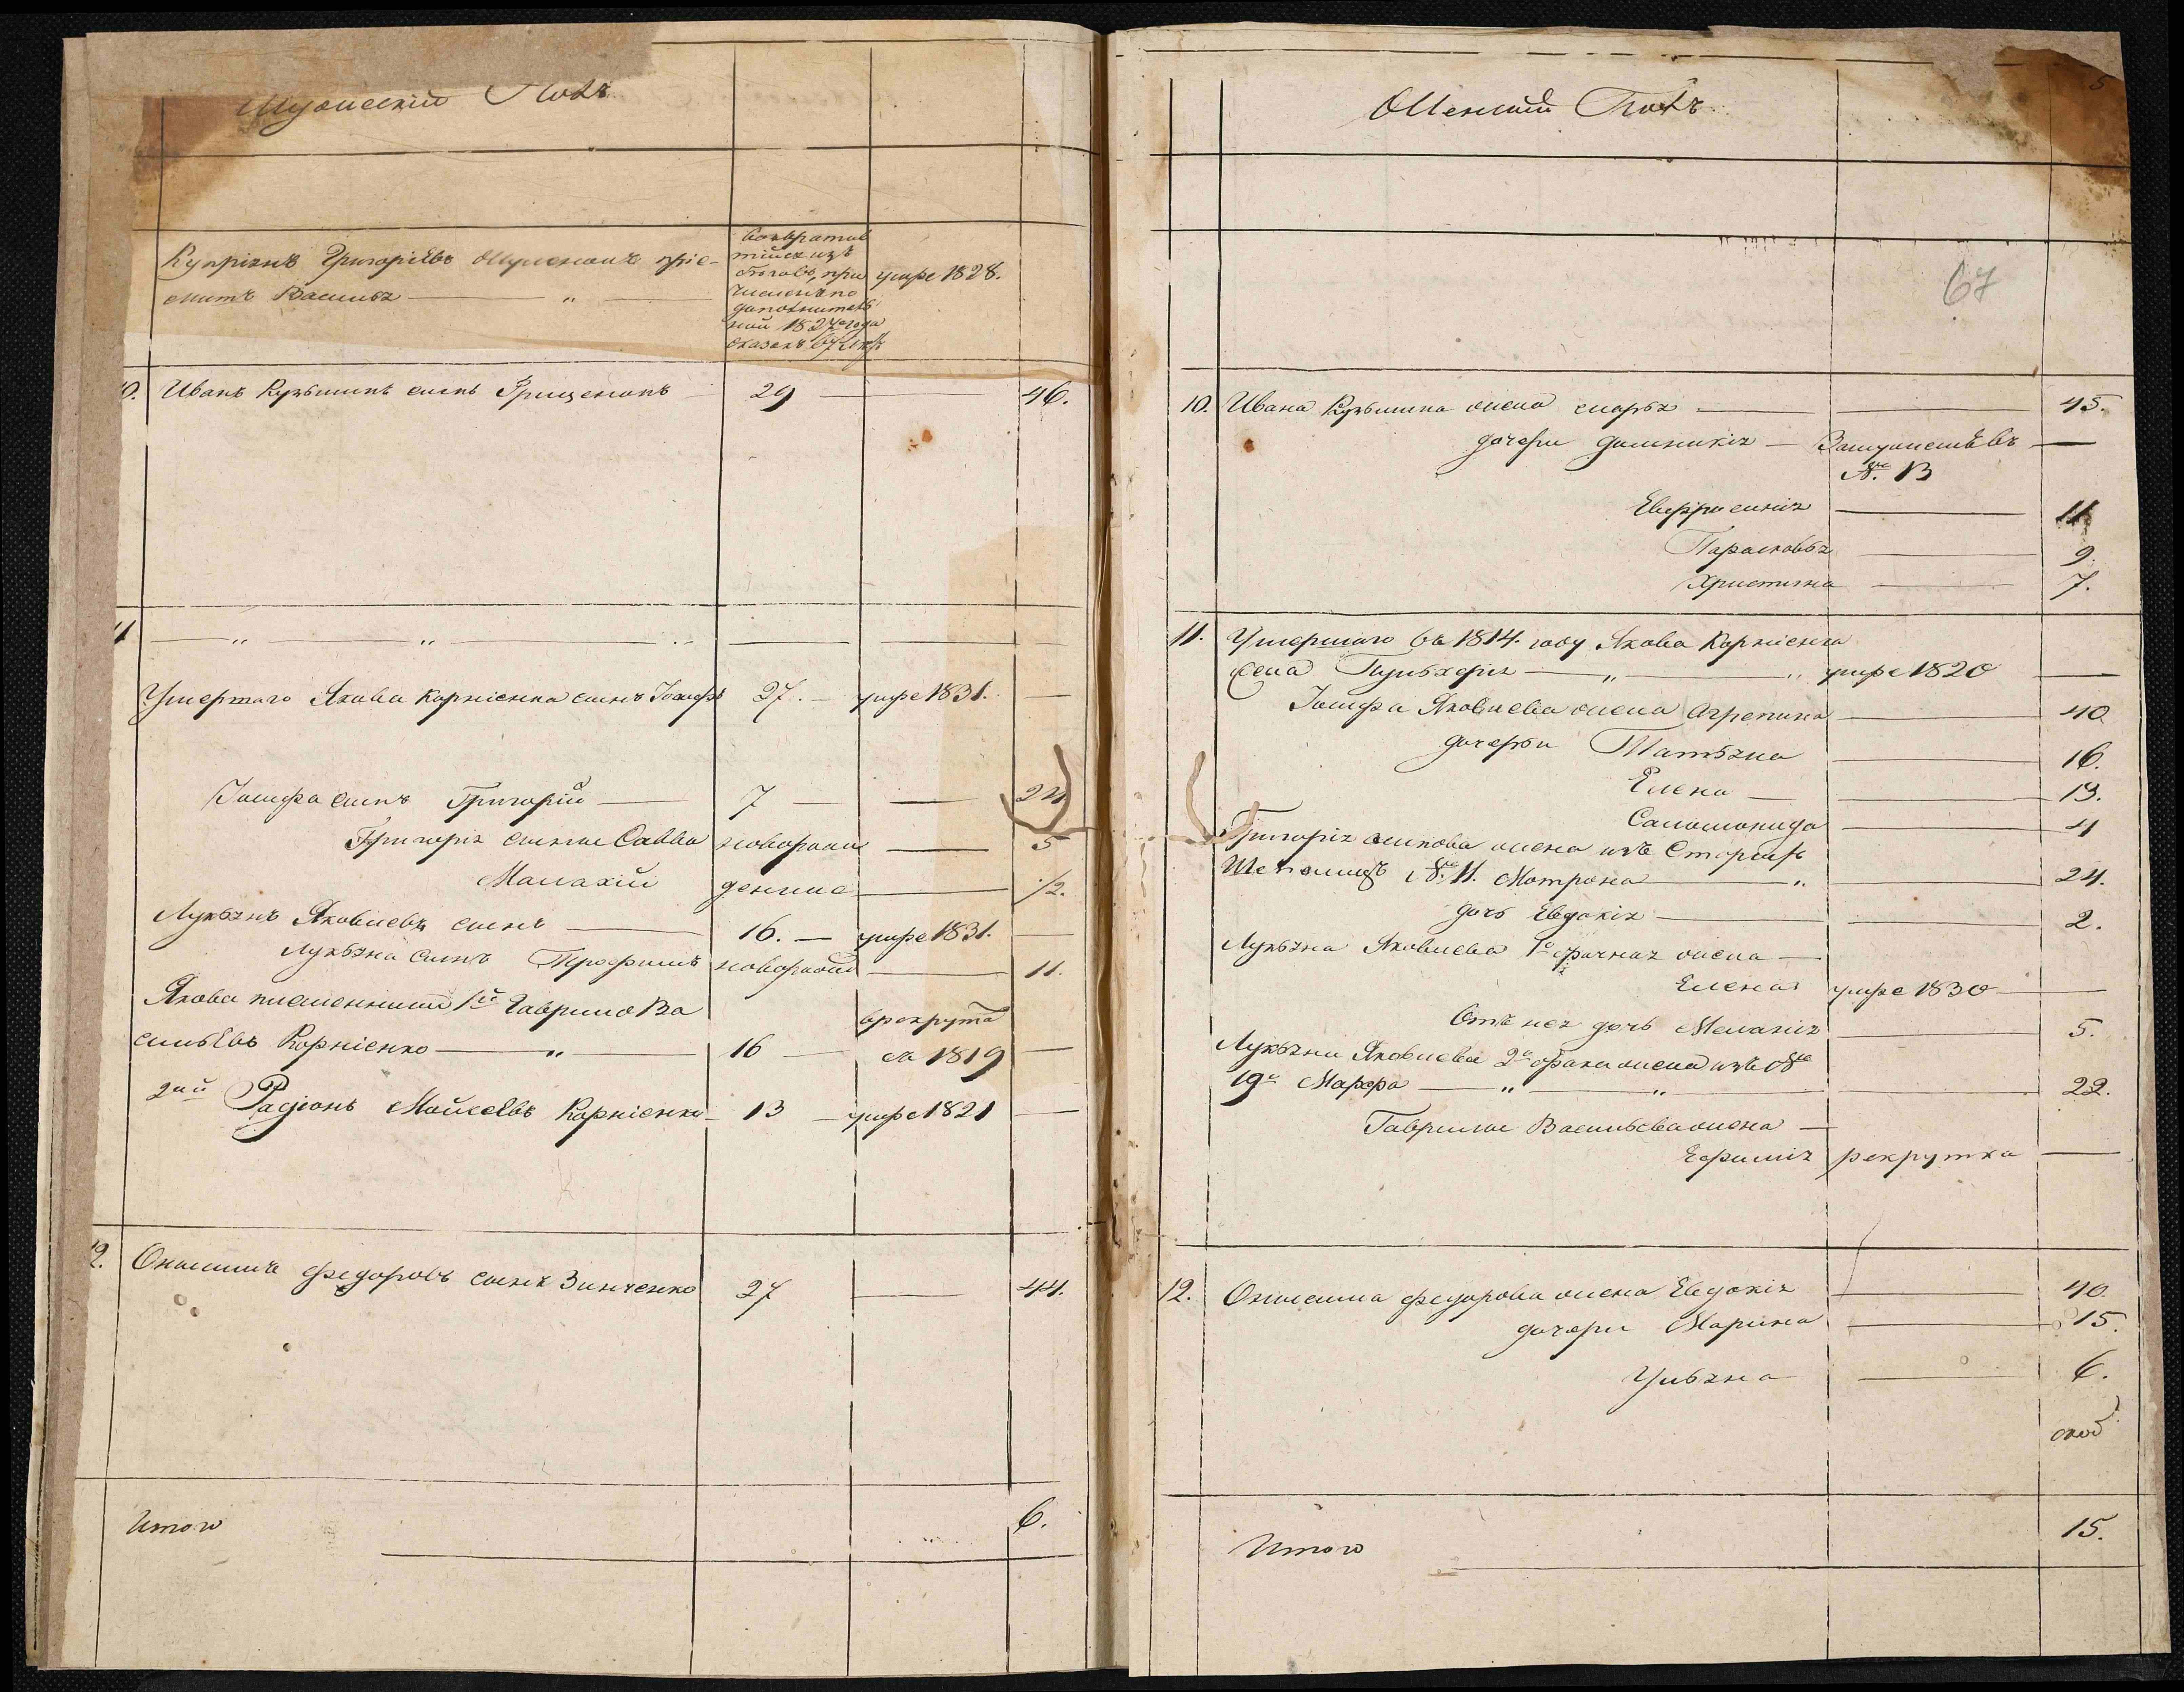 Мужескій Полъ
Купріянъ Григорієвъ Шуленокъ пріе-
мыт Василь — " —
возврати
тійся изъ
бѣговъ, при
численъ по
дополнитель
ной 1827 года
сказкѣ
умре 1828.
10. Иванъ Кузьминъ сынъ Грищенокъ 29 — 46.
11 — " — " —
Умершаго Якова Корніенка сынъ Іосифъ 27. — умре 1831. —
Іосифа сынъ Григорій — 7 — 24
Григорія сыны Савва новорож — 5
Малахій денные — 1/2.
Лукьянъ Яковлевъ сынъ — 16. — умре 1831. —
Лукьяна сынъ Трофимъ новорож — 11.
Якова племенники 1й Гаврило Ва
сильевъ Корніенко — " — 16 — в рекрутах
съ 1819 —
2ий Радіонъ Мойсеевъ Корніенко — 13 — умре 1821 —
12. Онисимъ Федоровъ сынъ Зинченко 27 — 44.
Итого 6.
Женский Полъ
5
67
10. Ивана Кузьмина жена Марья — 45.
дочери Домникія — Замужемъ въ —
№ 13
Евфросинія — 11
Парасковья — 9.
Христина — 7.
11. Умершаго въ 1814. году Якова Корніенка
жена Пульхерія — " — " умре 1820 —
Іосифа Яковлева жена Агрепина — 40
дочери Татьяна — 16.
Елена — 13.
Саломонида — 4
Григорія Осипова жена изъ Старыхъ
№ 11. Мотрона — " — 24.
дочь Евдокія — 2.
Лукьяна Яковлева 1го брачная жена —
Елена умре 1830 —
Отъ нея дочь Меланія — 5.
Лукьяна Яковлева 2го брака жена изъ №
19го Марфа — " — " — 22.
Гаврилы Васильева жена —
Ефимія рекрутка —
12. Онисима Федорова жена Евдокія — 40.
дочери Марина — 15.
Ульяна — 6.
Итого 15.